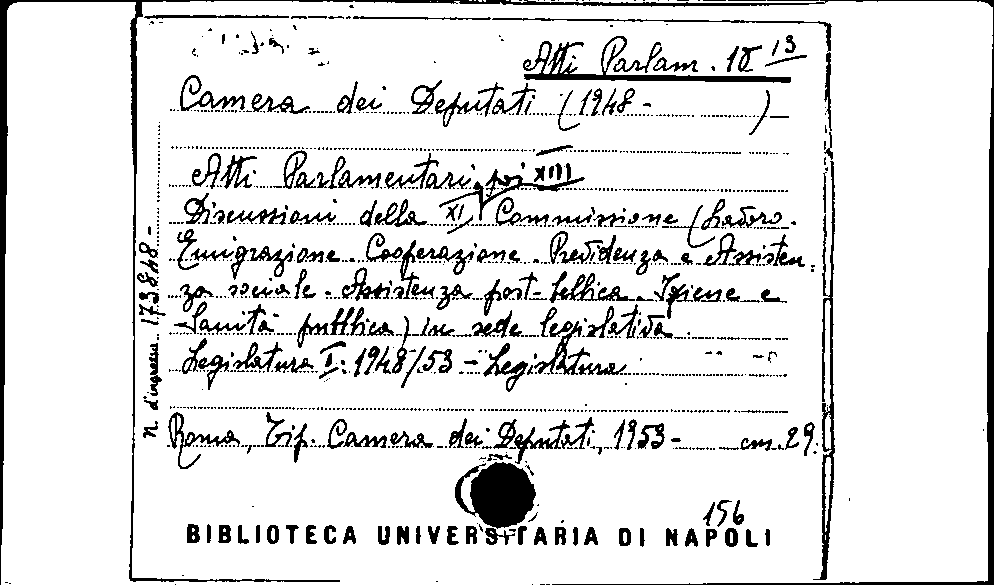 Atti Parlam. 10 13
Camera dei Deputati (1948- )-
Atti Parlamentari, poi XIII
Discussioni della XI Commissione (Lavoro.
Emigrazione. Cooperazione. Previdenza e Assisten.
za sociale. Assistenza post-bellica. Igiene e
Sanità pubblica) in sede legislativa.
Legislatura I: 1948/53 - Legislatura
Roma, Tip. Camera dei Deputati, 1953- cm. 29.
N. d'ingresso 173848-
156
BIBLIOTECA UNIVERSITARIA DI NAPOLI